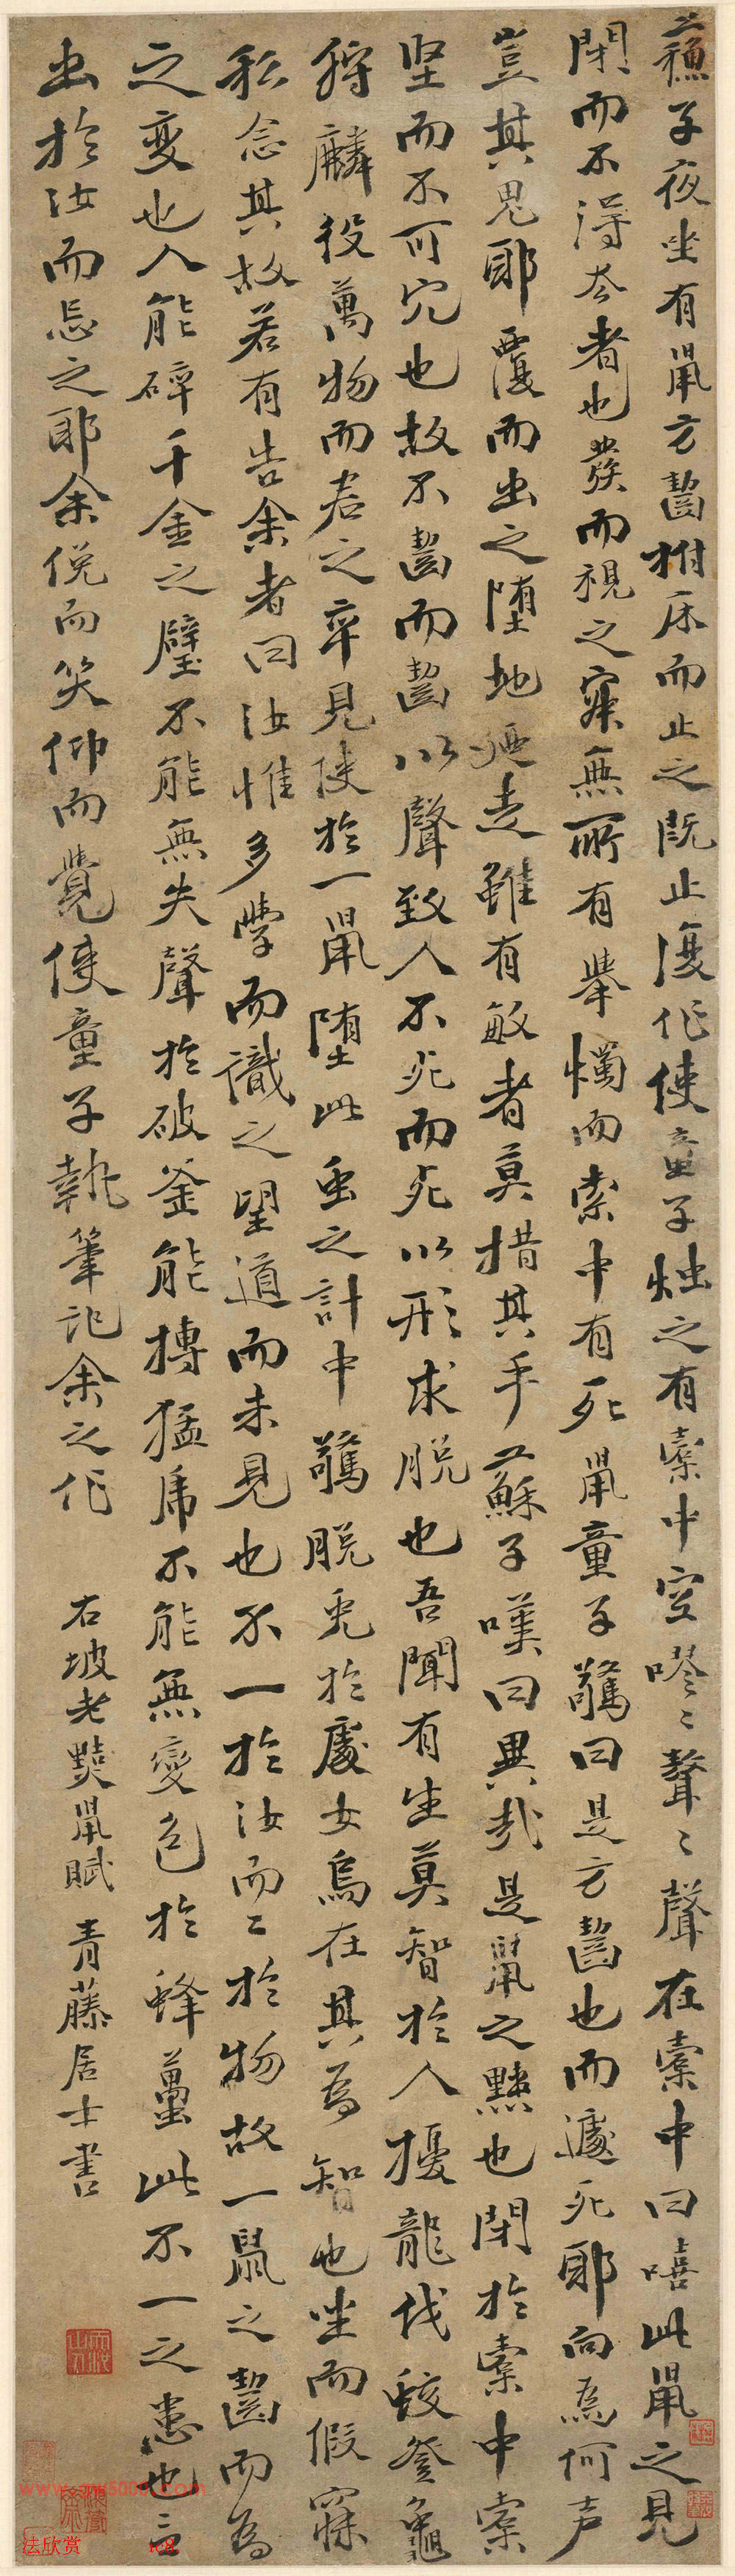 蘇子夜坐有鼠方齧拊床而止之既止復作使童子燭之有橐中空嘐〻聱〻聲在橐中曰嘻此鼠之見
閉而不得去者也發而視之寂無所有舉燭而索中有死鼠童子驚曰是方齧也而遽死耶向為何声
豈其鬼耶覆而出之墮地迺走雖有敏者莫措其手蘇子嘆曰異哉是鼠之黠也閉於橐中橐
坚而不可穴也故不齧而齧以聲致人不死而死以形求脱也吾聞有生莫智於人擾龍伐蛟登龜
狩麟役萬物而君之卒見使於一鼠墮此虫之計中驚脱兎於處女烏在其為智也坐而假寐
私念其故若有告余者曰汝惟多學而識之望道而未見也不一於汝而二於物故一鼠之齧而為
之变也人能碎千金之璧不能無失聲於破釜能搏猛虎不能無變色於蜂蠆此不一之患也言
出於汝而忘之耶余俛而笑仰而覺使童子執筆記余之作 右坡老黠鼠賦 青藤居士書
法欣赏